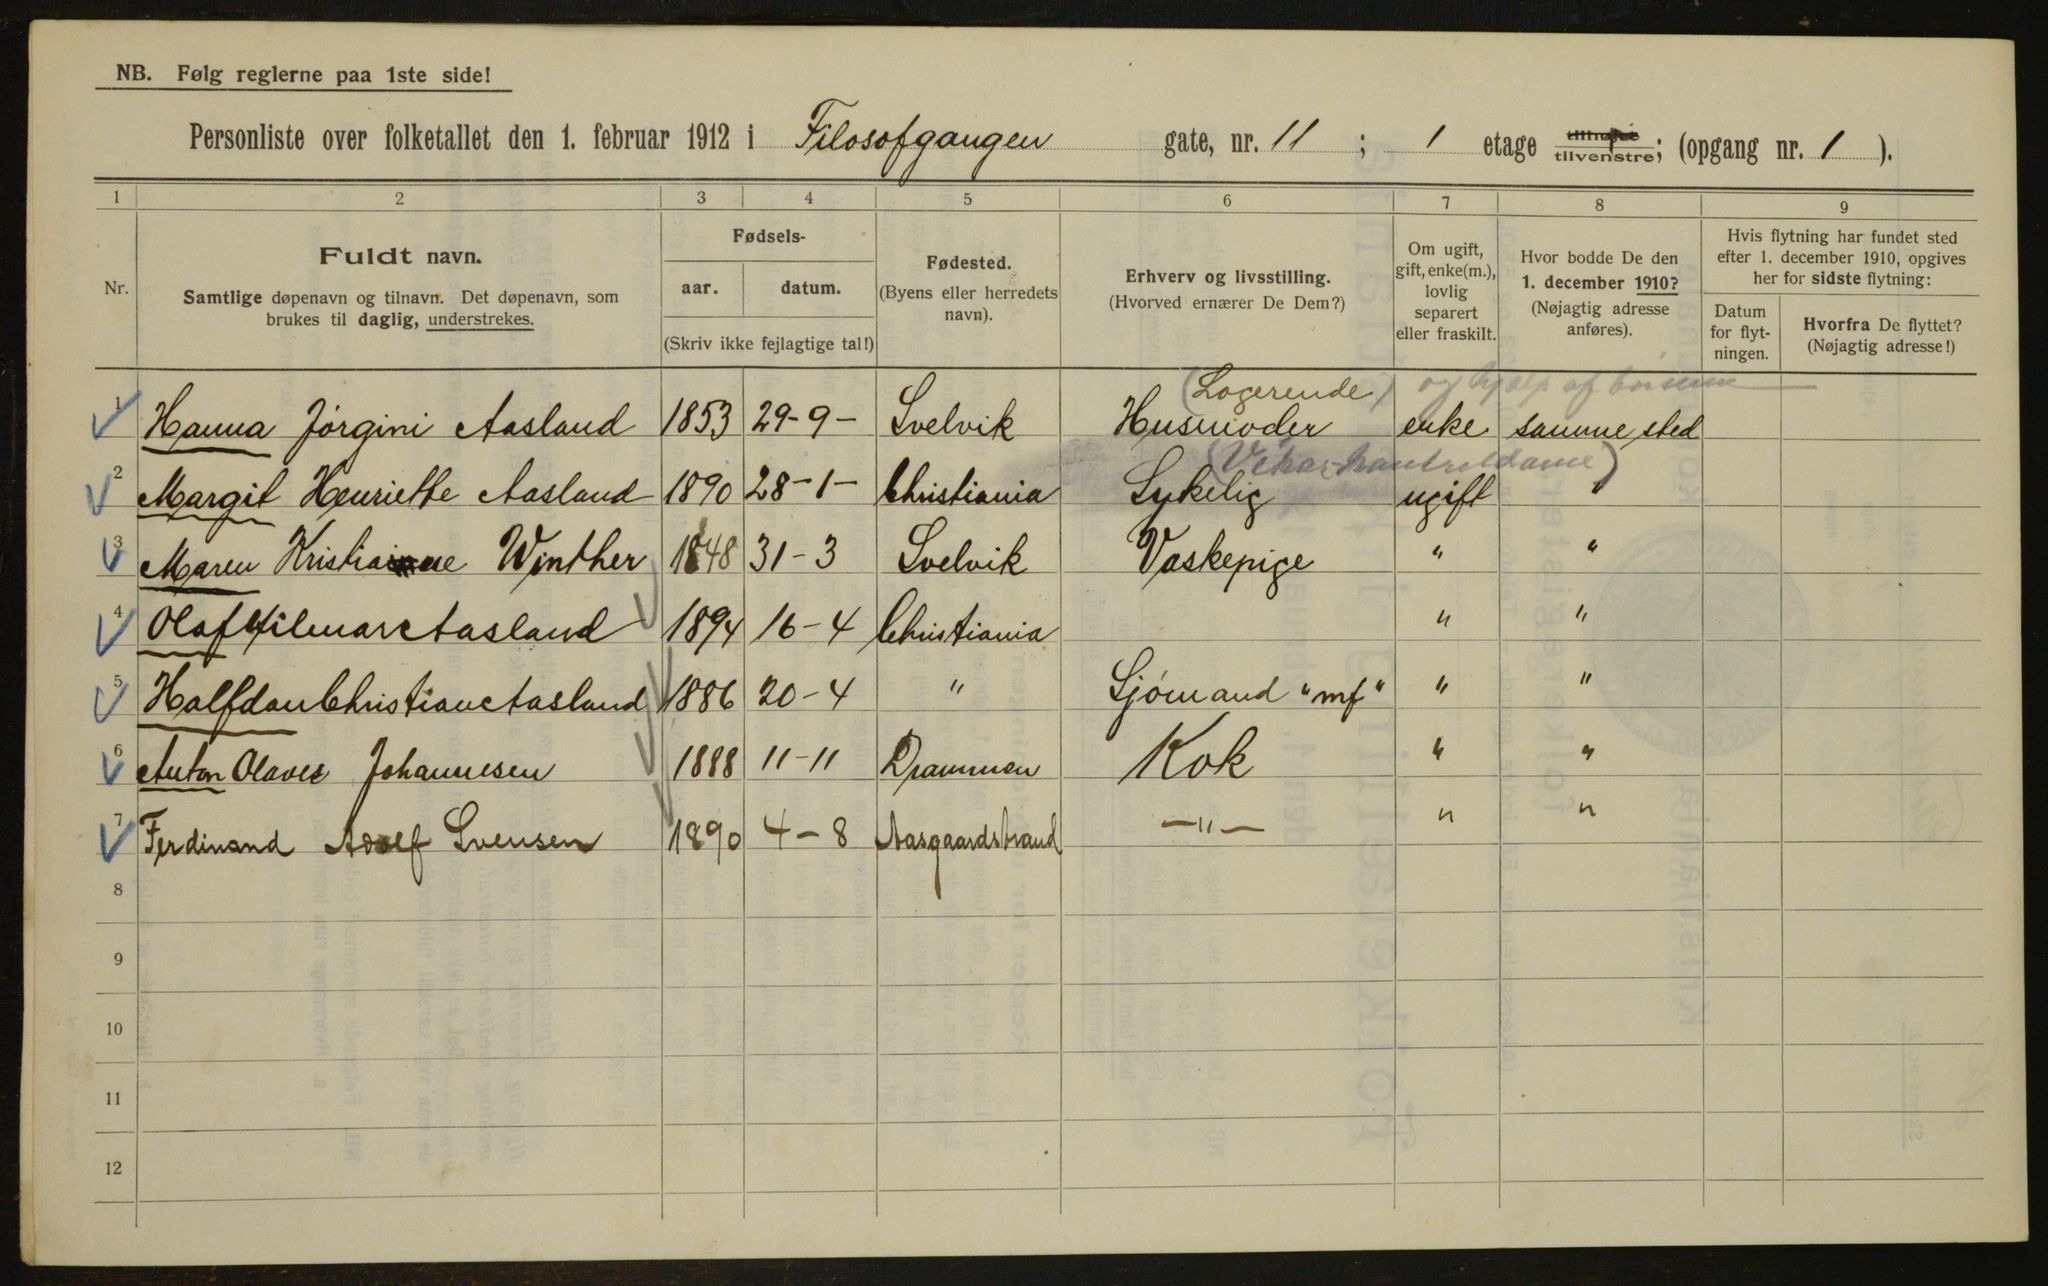 NB. Følg reglerne paa 1ste side!
Personliste over folketallet den 1. februar 1912 i Filosofgangen gate, nr. 11 ; 1 etage tilhøjre tilvenstre; (opgang nr. 1 ).
1 2 3 4 5 6 7 8 9
Nr.
Fuldt navn.
Samtlige døpenavn og tilnavn. Det døpenavn, som
brukes til daglig, understrekes.
Fødsels-
aar. datum.
(Skriv ikke fejlagtige tal!)
Fødested.
(Byens eller herredets
navn).
Erhverv og livsstilling.
(Hvorved ernærer De Dem?)
Om ugift,
gift, enke(m.),
lovlig
separert
eller fraskilt.
Hvor bodde De den
1. december 1910?
(Nøjagtig adresse
anføres).
Hvis flytning har fundet sted
efter 1. december 1910, opgives
her for sidste flytning:
Datum
for flyt-
ningen.
Hvorfra De flyttet?
(Nøjagtig adresse!)
(Logerende) og hjælp af
1 Hanna Jórgini Aasland 1853 29-9- Svelvik Husmoder enke samme sted
2 Margit Henriette Aasland 1890 28-1- Christiania Sykelig ugift "
3 Maren Kristianne Winther 1848 31-3 Svelvik Vaskepige " "
4 Olaf Hilmar Aasland 1894 16-4 Christiania " "
5 Halfdan Christian Aasland 1886 20-4 " Sjómand "mf" " "
6 Anton Olaves Johannesen 1888 11-11 Drammen Kok " "
7 Ferdinand Adolf Svensen 1890 4-8 Aasgaardstrand -"- " "
8
9
10
11
12